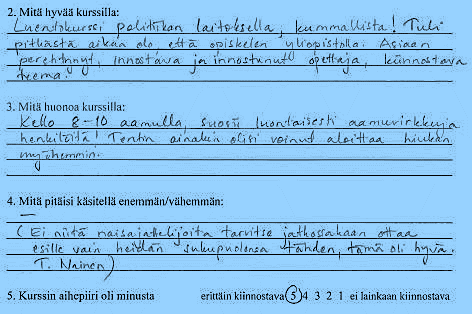 2. Mitä hyvää kurssilla:
Luentokurssi politiikan laitoksella, kummallista! Tuli
pitkästä aikaa olo, että opiskelen yliopistolla. Asiaan
perehtynyt, innostava ja innostunut opettaja, kiinnostava
teema.
3. Mitä huonoa kurssilla:
Kello 8-10 aamulla, suosii luontaisesti aamuvirkkuja
henkilöitä! Tentin ainakin olisi voinut aloittaa hiukan
myöhemmin.
4. Mitä pitäisi käsitellä enemmän/vähemmän:
—
(Ei niitä naisajattelijoita tarvitse jatkossakaan ottaa
esille vain heidän sukupuolensa tähden, tämä oli hyvä.
T. Nainen)
5. Kurssin aihepiiri oli minusta erittäin kiinnostava 5 4 3 2 1 ei lainkaan kiinnostava